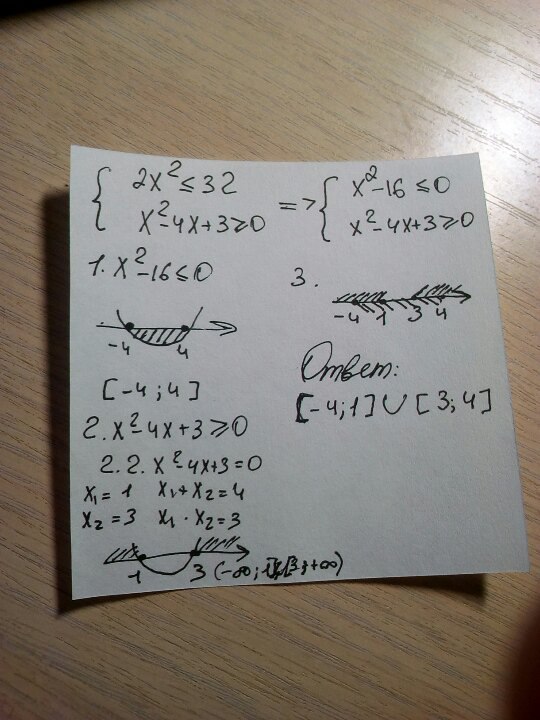 { 2x² ≤ 32 => { x² - 16 ≤ 0
x² - 4x + 3 ≥ 0 x² - 4x + 3 ≥ 0
1. x² - 16 ≤ 0
-4 4
[-4; 4]
2. x² - 4x + 3 ≥ 0
2.2. x² - 4x + 3 = 0
x₁ = 1 x₁ + x₂ = 4
x₂ = 3 x₁ · x₂ = 3
1 3 (-∞; 1]∪[3; +∞)
3.
-4 1 3 4
Ответ:
[-4; 1] ∪ [3; 4]